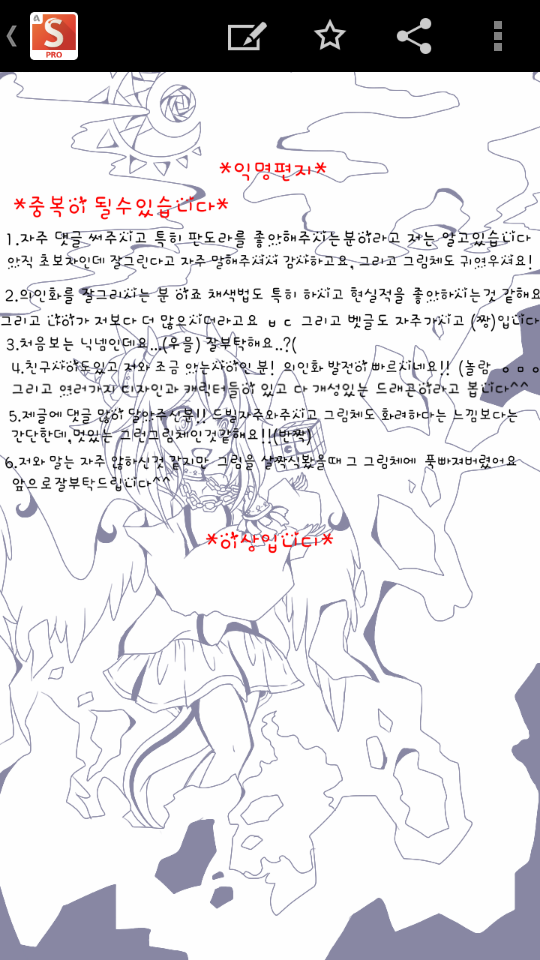 A
S
PRO
*익명편지*
*중복이 될수있습니다*
1.자주 댓글 써주시고 특히 판도라를 좋아해주시는분이라고 저는 알고있습니다
아직 초보자인데 잘그린다고 자주 말해주셔서 감사하고요, 그리고 그림체도 귀여우셔요!
2.의인화를 잘그리시는 분 이죠 채색법도 특히 하시고 현실적을 좋아하시는것 같해요
그리고 나이가 저보다 더 많으시더라고요 ㅂㄷ 그리고 벳글도 자주가시고 (짱)입니다
3.처음보는 닉넴인데요...(우믈) 잘부탁해요..?(
4.친구사이도있고 저와 조금 아는사이인 분! 의인화 발전이 빠르시네요!! (놀람 ㅇㅁㅇ
그리고 여러가지 디자인과 캐릭터들이 있고 다 개성있는 드래곤이라고 봅니다^^
5.제글에 댓글 많이 달아주신분!! 드빌자주와주시고 그림체도 화려하다는 느낌보다는
간단한데 멋있는 그런그림체인것같해요!!(반짝)
6.저와 말는 자주 않하신것 같지만 그림을 살짝식봤을때 그 그림체에 푹빠져버렸어요
앞으로잘부탁드립니다^^
*이상입니다*